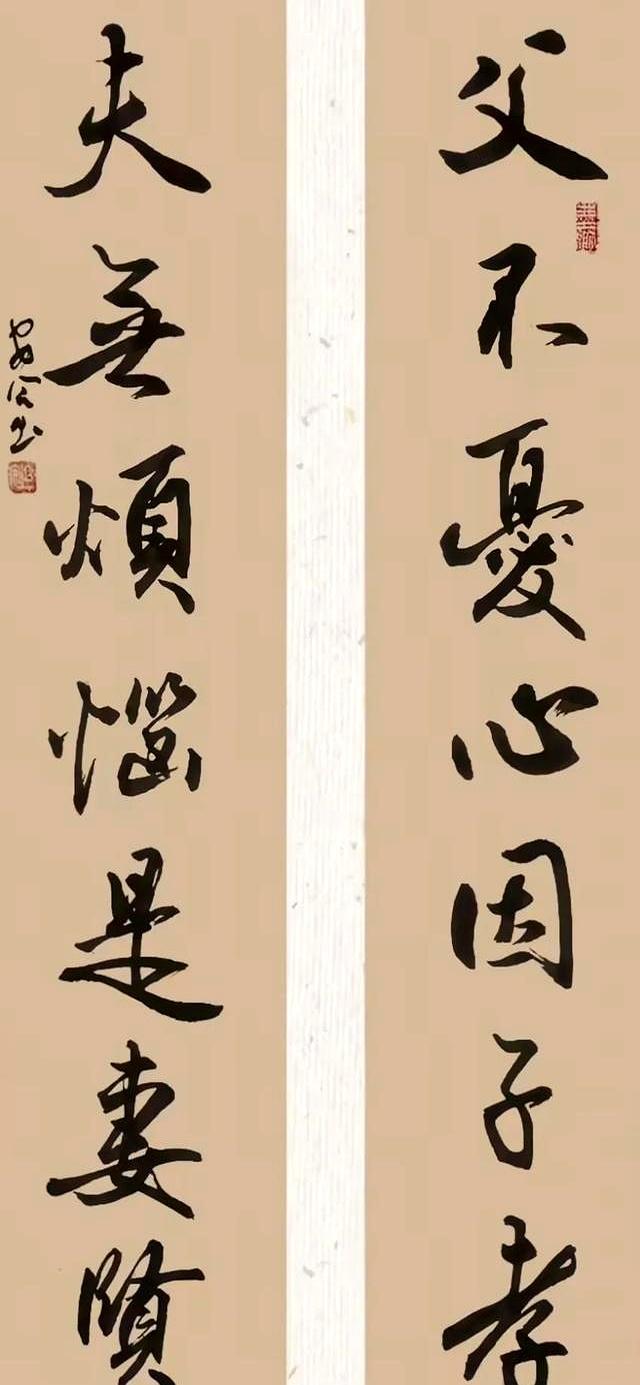 父不憂心因子孝
夫無煩惱是妻賢